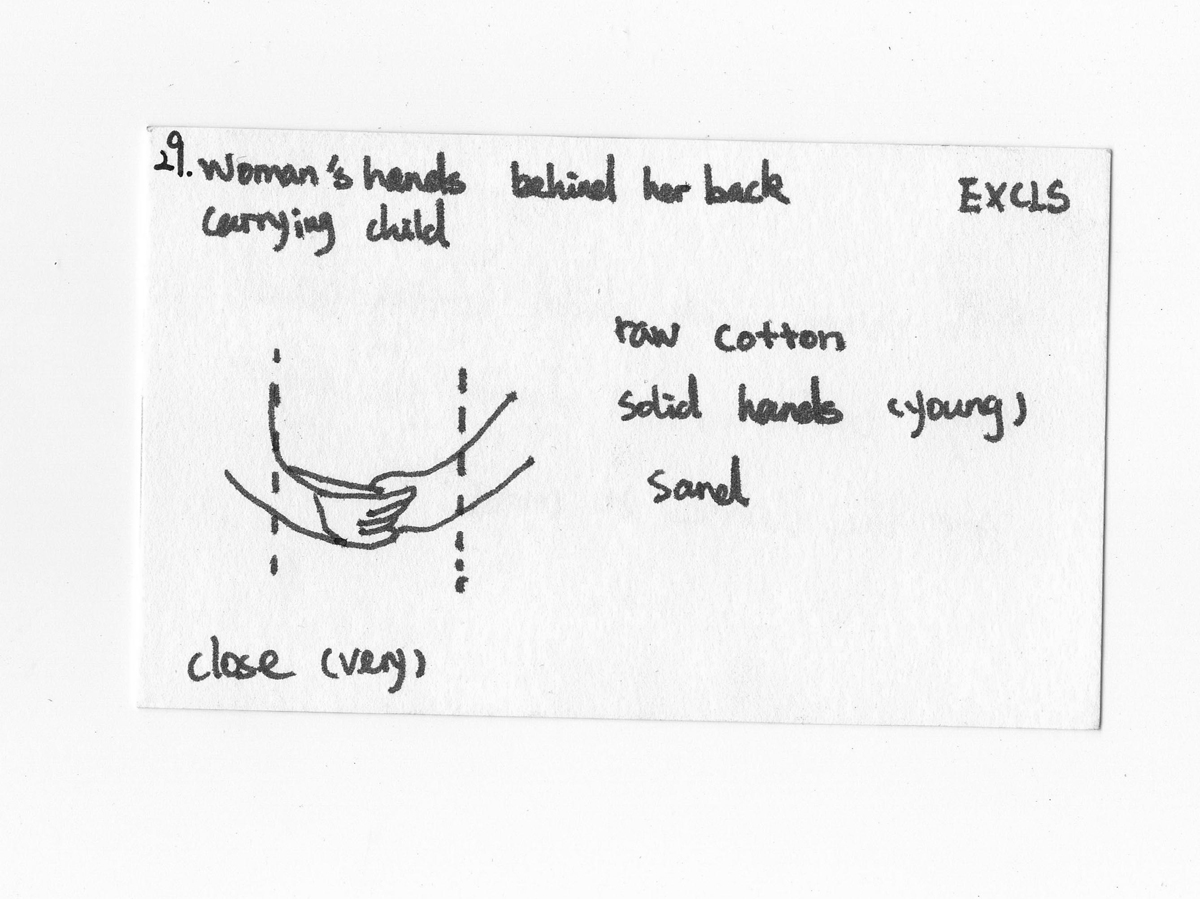 29. Woman's hands behind her back
carrying child
EXCLS
raw cotton
solid hands (young)
sand
close (very)